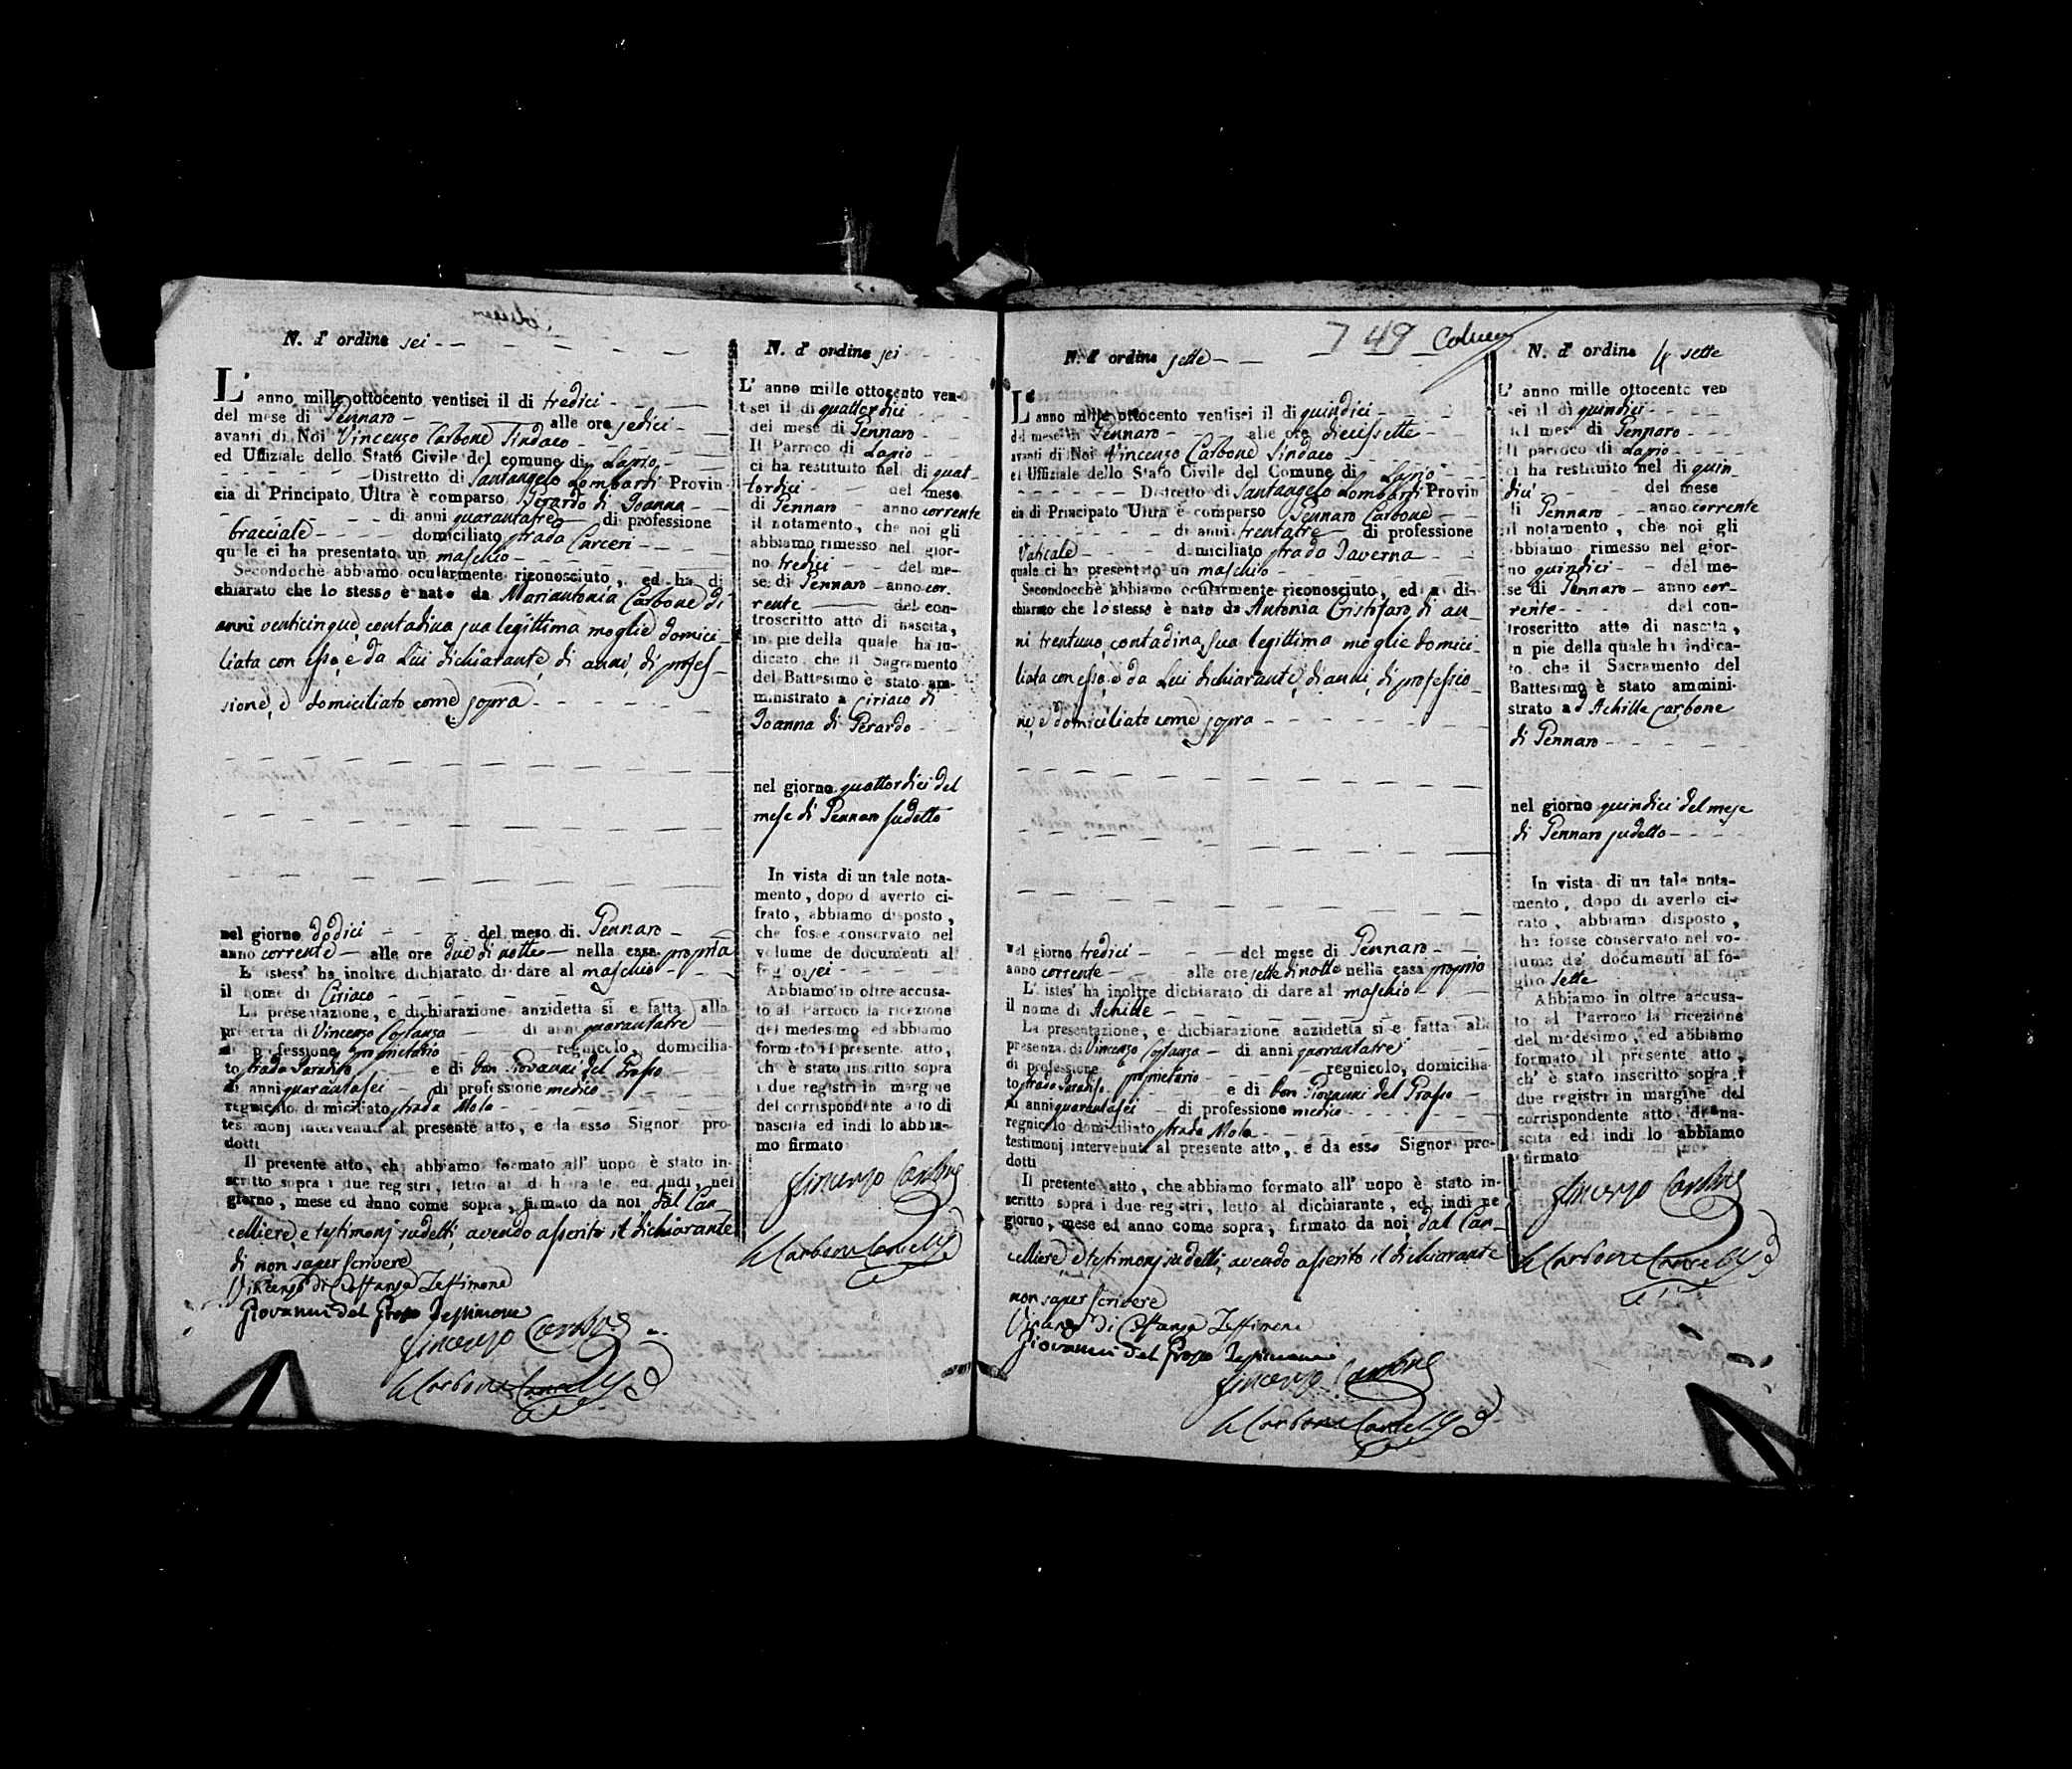 N. d' ordine sei
L' anno mille ottocento ventisei il di tredici
del mese di Gennaro alle ore sedici
avanti di Noi Vincenzo Carbone Sindaco
ed Uffiziale dello Stato Civile del comune di Lapio
Distretto di Santangelo Lombardi Provin
cia di Principato Ultra è comparso Gerardo di Joanna
di anni quarantatre di professione
bracciale domiciliato strada Carceri
quale ci ha presentato un maschio
Secondochè abbiamo ocularmente riconosciuto, ed ha di
chiarato che lo stesso è nato da Mariantonia Carbone di
anni venticinque, contadina sua legittima moglie domici-
liata con esso, e da Lui dichiarante, di anni, di profes-
sione, e domiciliato come sopra
nel giorno dodici del mese di Gennaro
anno corrente alle ore due di notte nella casa propria
L' istess' ha inoltre dichiarato di dare al maschio
il nome di Ciriaco
La presentazione, e dichiarazione anzidetta si e fatta alla
presenza di Vincenzo Costanza di anni quarantatre
di professione proprietario regnicolo, domicilia-
to strada Paradiso e di Don Giovanni del Grosso
di anni quarantasei di professione medico
regnicolo domiciliato strada Mola
testimonj intervenuti al presente atto, e da esso Signor pro-
dotti
Il presente atto, che abbiamo formato all' uopo è stato in-
scritto sopra i due registri, letto al dichiarante, ed indi, nel
giorno, mese ed anno come sopra, firmato da noi, dal Can
celliere, e testimonj sudetti, avendo asserito il dichiarante
di non saper scrivere
Vincenzo di Costanza Testimone
Giovanni del Grosso Testimone
Vincenzo Carbone
Carbone Cancell
N. d' ordine sei
L' anno mille ottocento ven-
tsei il di quattordici
del mese di Gennaro
Il Parroco di Lapio
ci ha restituito nel di quat-
tordici del mese
di Gennaro anno corrente
il notamento, che noi gli
abbiamo rimesso nel gior-
no tredici del me-
se di Gennaro anno cor-
rente del con-
troscritto atto di nascita,
in pie della quale ha in-
dicato che il Sagramento
del Battesimo è stato am-
ministrato a Ciriaco di
Joanna di Gerardo
nel giorno quattordici del
mese di Gennaro sudetto
In vista di un tale nota-
mento, dopo d averlo ci-
frato, abbiamo disposto,
che fosse conservato nel
volume de documenti al
foglio sei
Abbiamo in oltre accusa-
to al Parroco la ricezione
del medesimo ed abbiamo
formato il presente atto,
ch' è stato inscritto sopra
i due registri in margine
del corrispondente atto di
nascita ed indi lo abbia-
mo firmato
Vincenzo Carbone
Carbone Cancell
7 49
N. d' ordine sette
L' anno mille ottocento ventisei il di quindici
del mese di Gennaro alle ore diecissette
avanti di Noi Vincenzo Carbone Sindaco
ed Uffiziale dello Stato Civile del Comune di Lapio
Distretto di Santangelo Lombardi Provin
cia di Principato Ultra è comparso Gennaro Carbone
di anni trentatre di professione
Vaticale domiciliato strada Taverna
quale ci ha presentato un maschio
Secondocchè abbiamo ocularmente riconosciuto, ed a di-
chiarato che lo stesso è nato da Antonia Cristofaro di an
ni trentuno, contadina, sua legittima moglie domici-
liata con esso, e da Lui dichiarante, di anni, di professio-
ne, e domiciliato come sopra
nel giorno tredici del mese di Gennaro
anno corrente alle ore sette di notte nella casa propria
L' istes' ha inoltre dichiarato di dare al maschio
il nome di Achille
La presentazione, e dichiarazione anzidetta si e fatta alla
presenza di Vincenzo Costanza di anni quarantatre
di professione proprietario regnicolo, domicilia
to strada Paradiso e di Don Giovanni del Grosso
di anni quarantasei di professione medico
regnicolo domiciliato strada Mola
testimonj intervenuti al presente atto, e da esso Signor pro-
dotti
Il presente atto, che abbiamo formato all' uopo è stato in-
scritto sopra i due registri, letto al dichiarante, ed indi ne
giorno, mese ed anno come sopra, firmato da noi, dal Can-
celliere, e testimonj sudetti, avendo asserito il dichiarante
non saper scrivere
Vincenzo di Costanza Testimone
Giovanni del Grosso Testimone
Vincenzo Carbone
Carbone Cancell
N. d' ordine sette
L' anno mille ottocento ven
sei il di quindici
del mese di Gennaro
Il parroco di Lapio
ci ha restituito nel di quin-
dici del mese
di Gennaro anno corrente
il notamento, che noi gli
abbiamo rimesso nel gior-
no quindici del me-
se di Gennaro anno cor-
rente del con-
troscritto atto di nascita,
in pie della quale ha indica-
to che il Sacramento del
Battesimo è stato ammini-
strato ad Achille Carbone
di Gennaro
nel giorno quindici del mese
di Gennaro sudetto
In vista di un tale nota-
mento, dopo di averlo ci-
frato, abbiamo disposto,
che fosse conservato nel vo-
lume de' documenti al fo-
glio sette
Abbiamo in oltre accusa-
to al Parroco la ricezione
del medesimo, ed abbiamo
formato il presente atto,
ch' è stato inscritto sopra i
due registri in margine del
corrispondente atto di na-
scita ed indi lo abbiamo
firmato
Vincenzo Carbone
Carbone Cancell